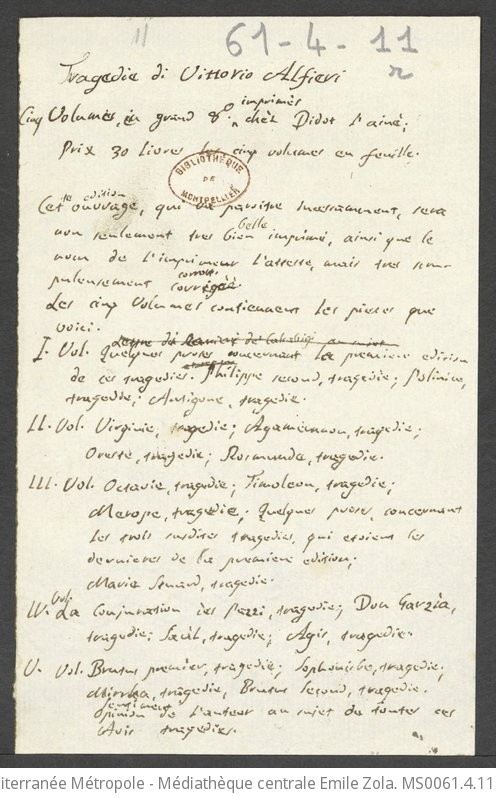 61-4-11
r
Tragedie di Vittorio Alfieri
Cinq Volumes, in grand 8.º imprimés chèt Didot l'ainé;
Prix 30 livres les cinq volumes en feuille.
BIBLIOTHÈQUE DE MONTPELLIER
Cette edition ouvrage, qui va paroitre incessamment, sera
non seulement tres bien belle imprimé, ainsi que le
nom de l'imprimeur l'atteste, mais tres scru-
puleusement corrigée correct.
Les cinq Volumes contiennent les pieces que
voici.
Lettre de Ranieri de Calsabigi au sujet
I. Vol. Quelques proses concernant la premiere edition
de ces tragedies. Philippe second, tragedie; Polinice,
tragedie; Antigone, tragedie.
II. Vol. Virginie, tragedie; Agamemnon, tragedie;
Oreste, tragedie; Rosmunda, tragedie.
III. Vol. Octavie, tragedie; Timoleon, tragedie;
Merope, tragedie; Quelques proses, concernant
les trois susdites tragedies, qui etoient les
dernieres de la premiere edition;
Marie Stuard, tragedie.
IV. Vol. La Conjuration des Pazzi, tragedie; Don Garzia,
tragedie; Saül, tragedie; Agis, tragedie.
V. Vol. Brutus premier, tragedie; Sophonisbe, tragedie;
Mirrha, tragedie, Brutus second, tragedie.
Sentiment opinion de l'auteur au sujet de toutes ces
Avis tragedies.
iterranée Métropole - Médiathèque centrale Emile Zola. MS0061.4.11